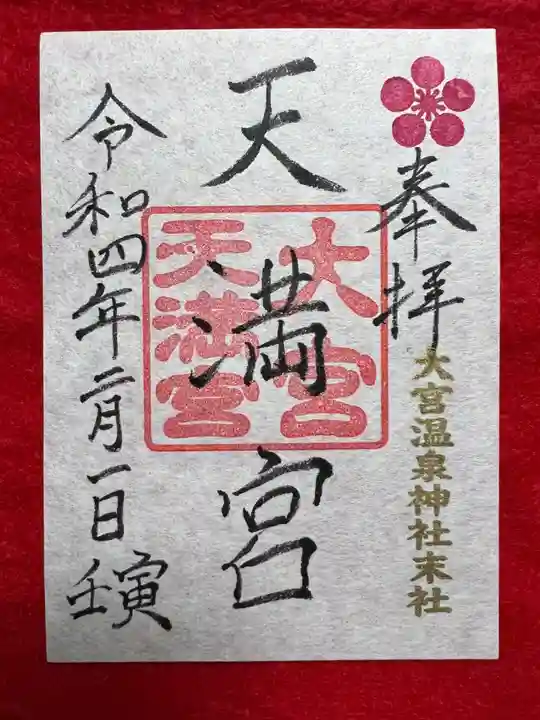 奉拝
大宮温泉神社末社
天満宮
大宮
天満宮
令和四年二月一日
壬寅